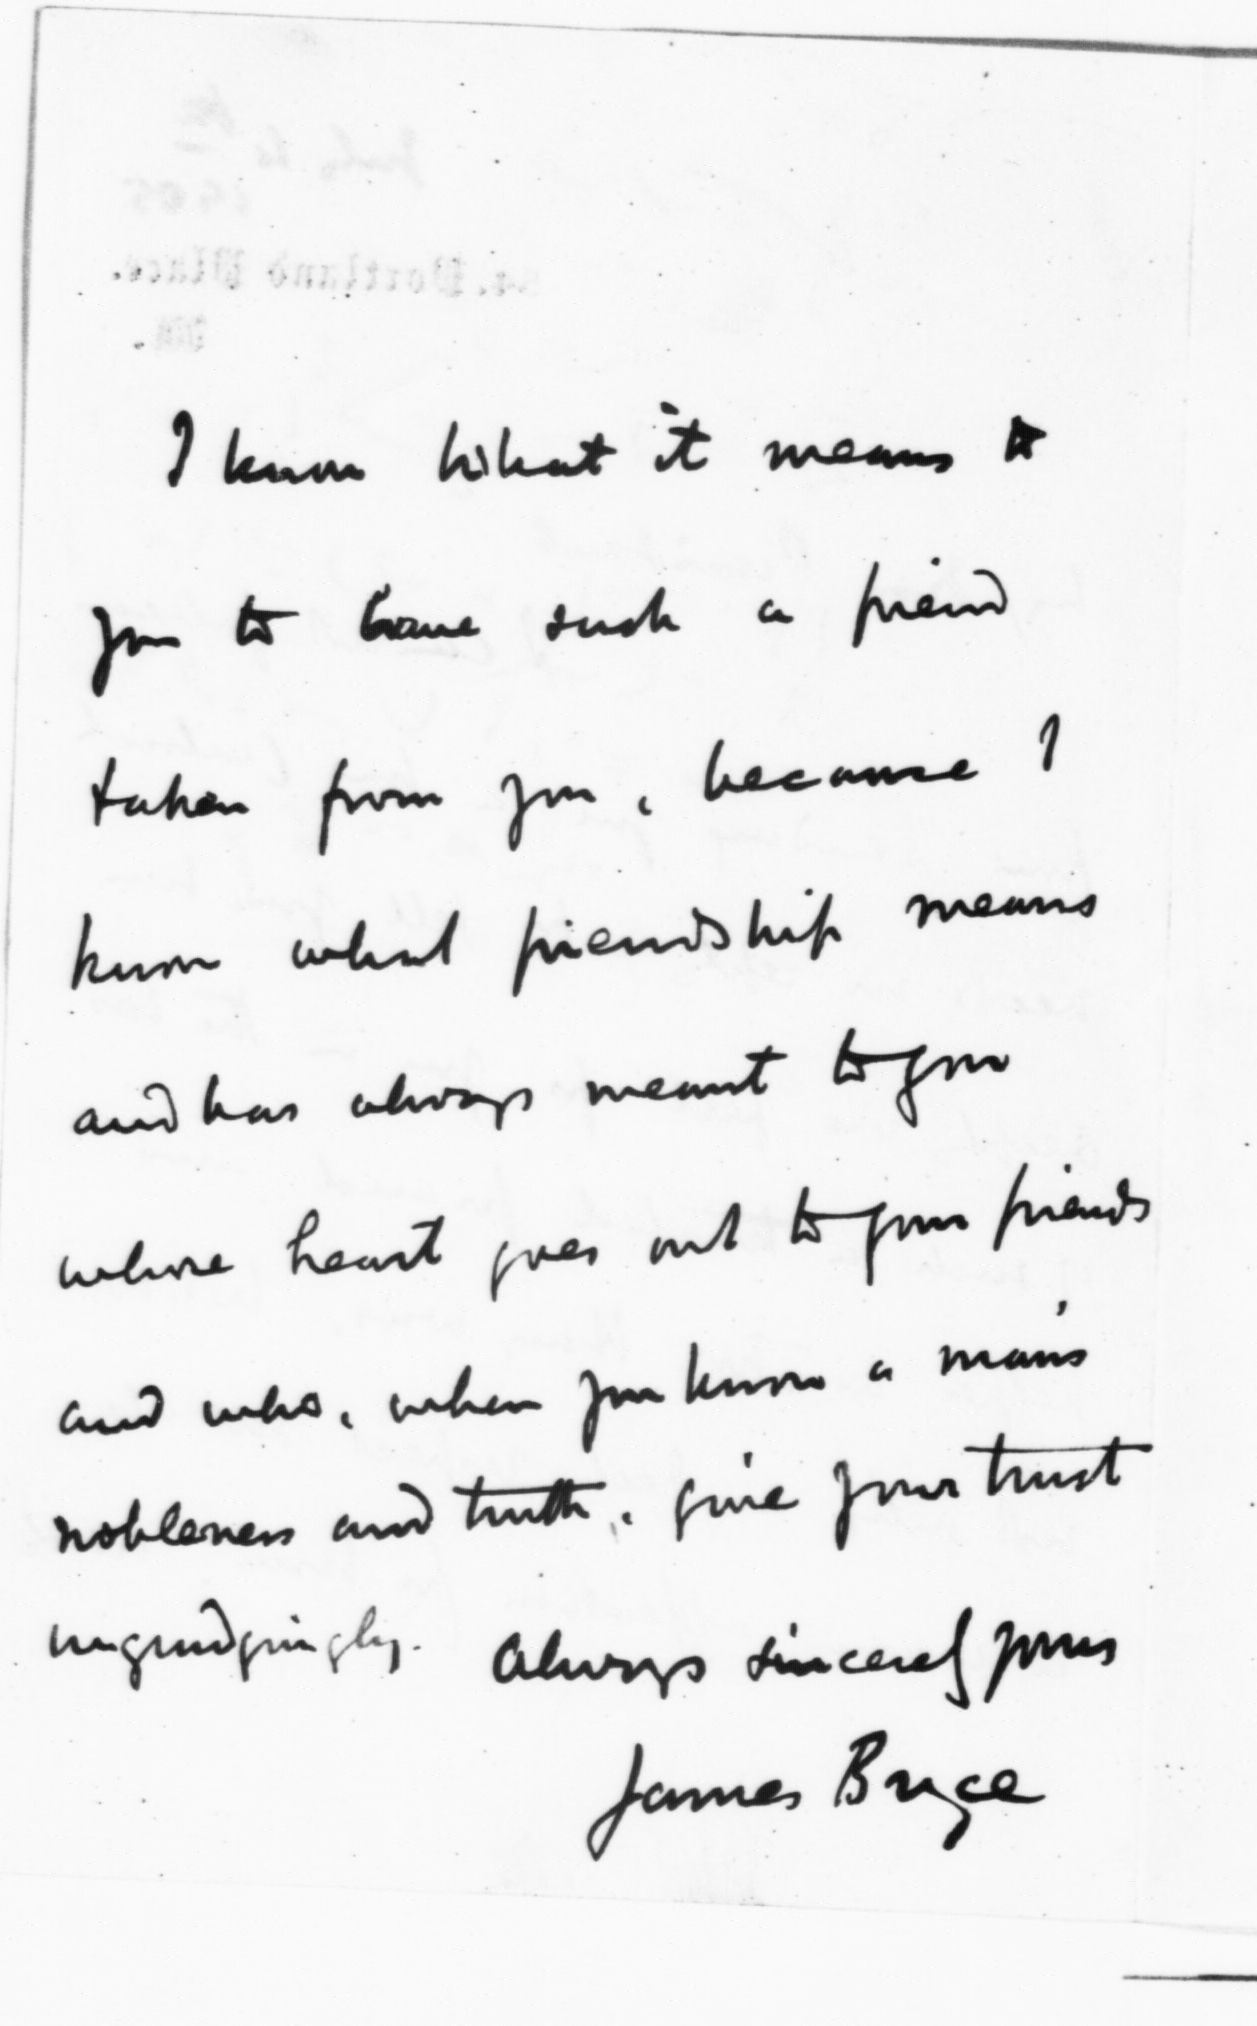 I know what it means to
you to have such a friend
taken from you, because I
know what friendship means
and has always meant to you
whose heart goes out to your friends
and who, when you know a man's
nobleness and truth, give your trust
ungrudgingly. Always sincerely yours
James Bryce